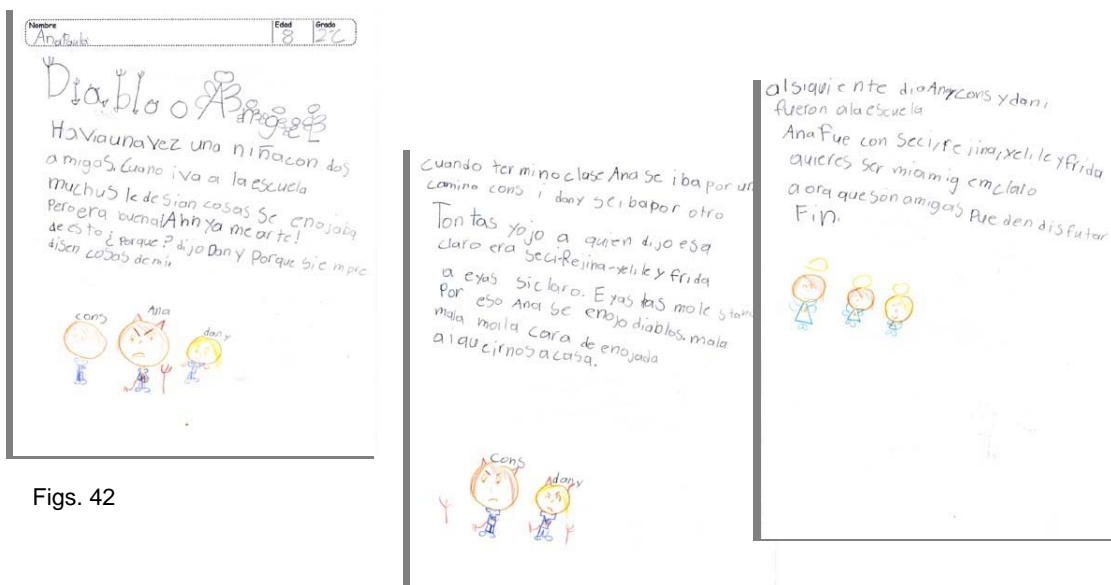 Nombre
AnaPaula
Edad
8
Grado
2°C
Diablo o Angel
Havia una vez una niña con dos
amigas. Cuano iva a la escuela
muchus le desian cosas se enojaba
Pero era buena ¡Ahh ya me arte!
de esto ¿Porque? dijo Dany Porque siempre
disen cosas de mi.
cons
Ana
dany
Figs. 42
cuando termino clase Ana se iba por un
camino cons i dany se iba por otro
Tontas yojo a quien dijo esa
claro era Seci-Rejina-yelile y frida
a eyas si claro. Eyas las
Por eso Ana se enojo diablos. mala
mala cara de enojada
aiqueirnos a casa.
cons
dany
al siquiente dia Any cons y dani
fueron ala escuela
Ana fue con Seci, rejina, yelile y frida
quieres ser miamig claro
a ora que son amigas Pueden disfutar
Fin.